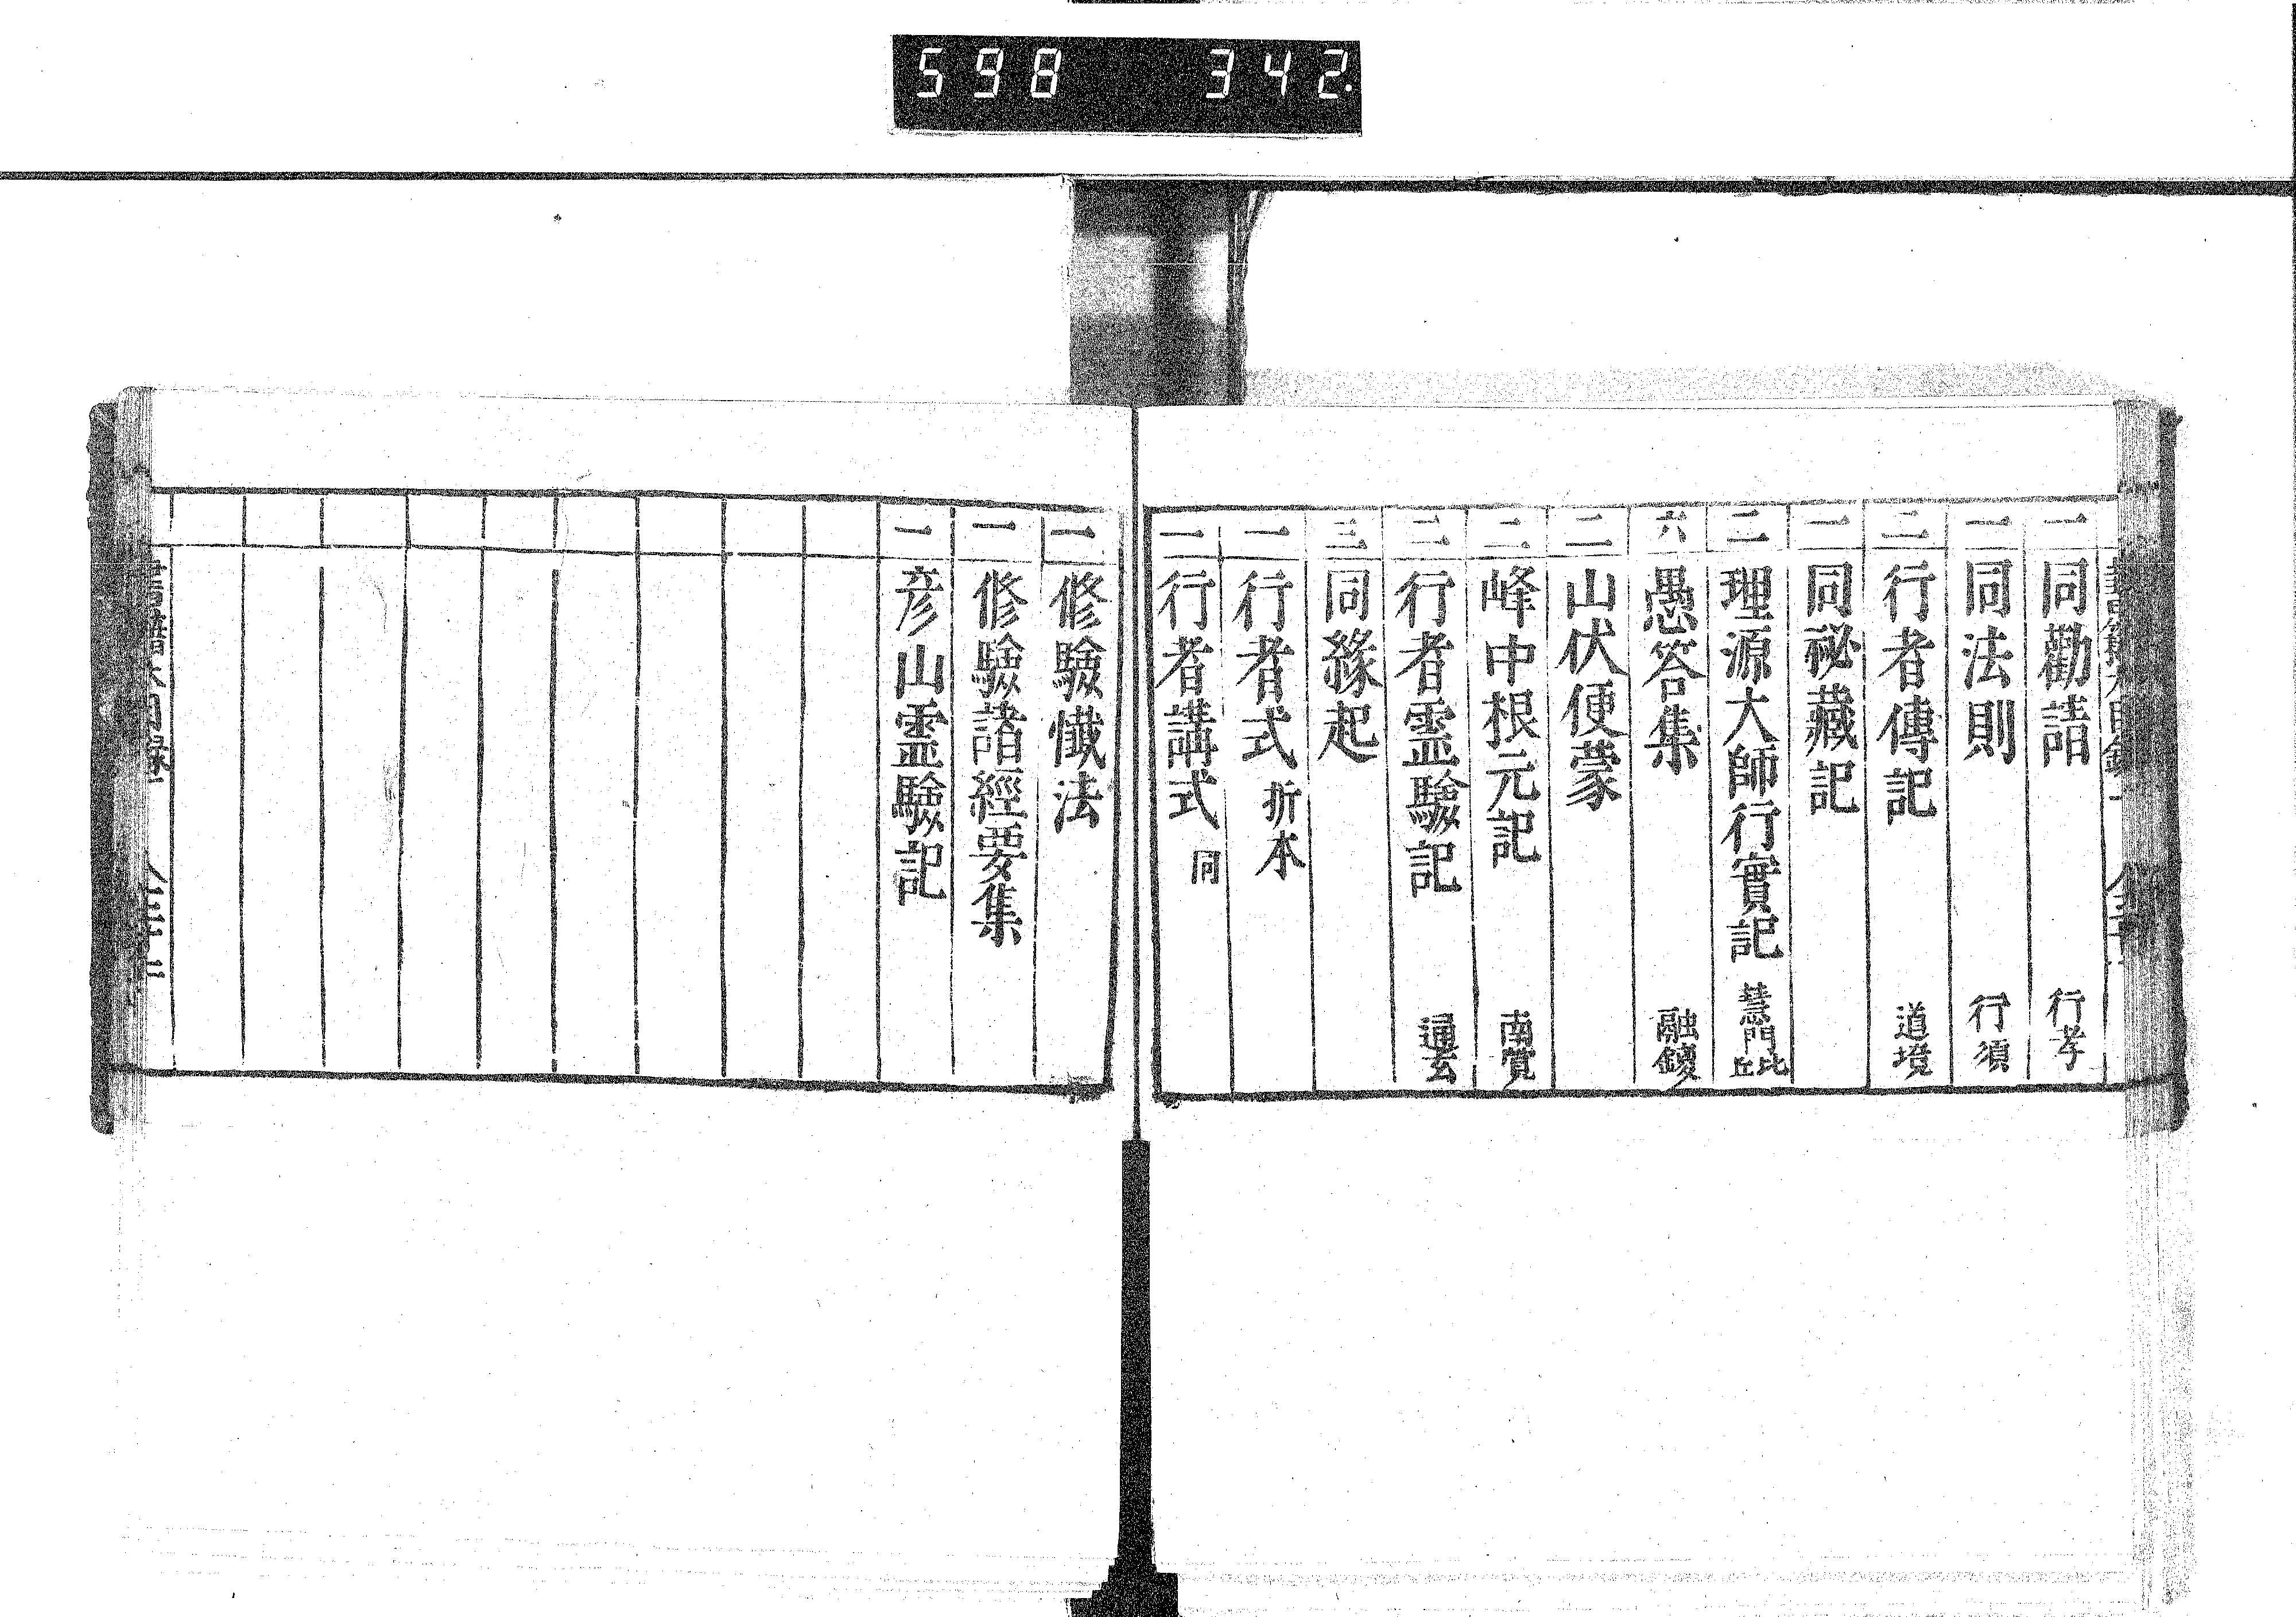 598 342
一 同勸請 行孝
一 同法則 行須
三 行者傳記 道境
一 同祕藏記
二 理源大師行實記 慧門比丘
六 愚答集 融鑁
二 山伏便蒙
二 峰中根元記 南覚
二 行者霊驗記
三 同緣起
一 行者式 折本
一 行者講式 同
一 修驗懺法
一 修驗諸經要集
一 彦山霊驗記